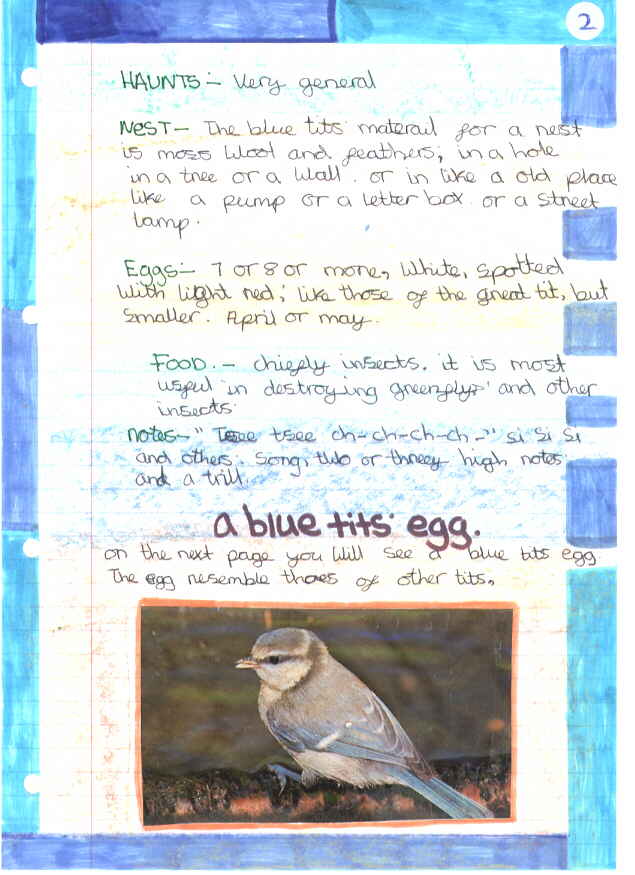 2
HAUNTS:- Very general
NEST- The blue tits materail for a nest
is moss wool and feathers, in a hole
in a tree or a wall. or in like a old place
like a pump or a letter box. or a street
lamp.
Eggs:- 7 or 8 or more, White, spotted
with light red; like those of the great tit, but
smaller. April or may.
FOOD.- chiefly insects. it is most
useful in destroying greenflys' and other
insects.
notes-" Tsee tsee ch-ch-ch-ch-" si si si
and others. Song, two or threey high notes
and a trill.
a blue tits egg.
on the next page you will see a blue tits egg
The egg resemble thoes of other tits.